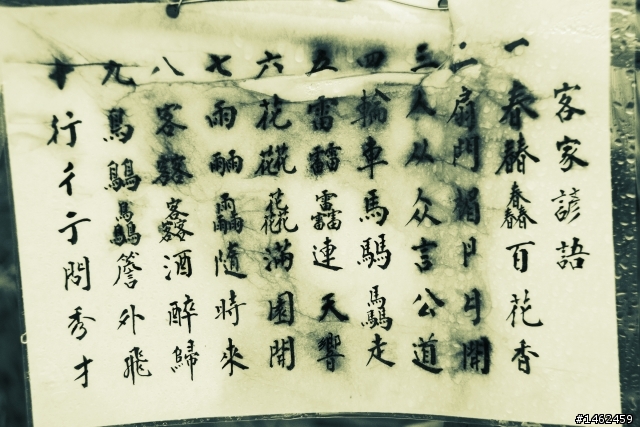 客家諺語
一春百花香
二扇門開
三人从众言公道
四輪車馬騳驫走
五雷䨻連天響
六花滿園開
七雨隨時來
八客酒醉歸
九鳥簷外飛
十行彳亍問秀才
#1462459